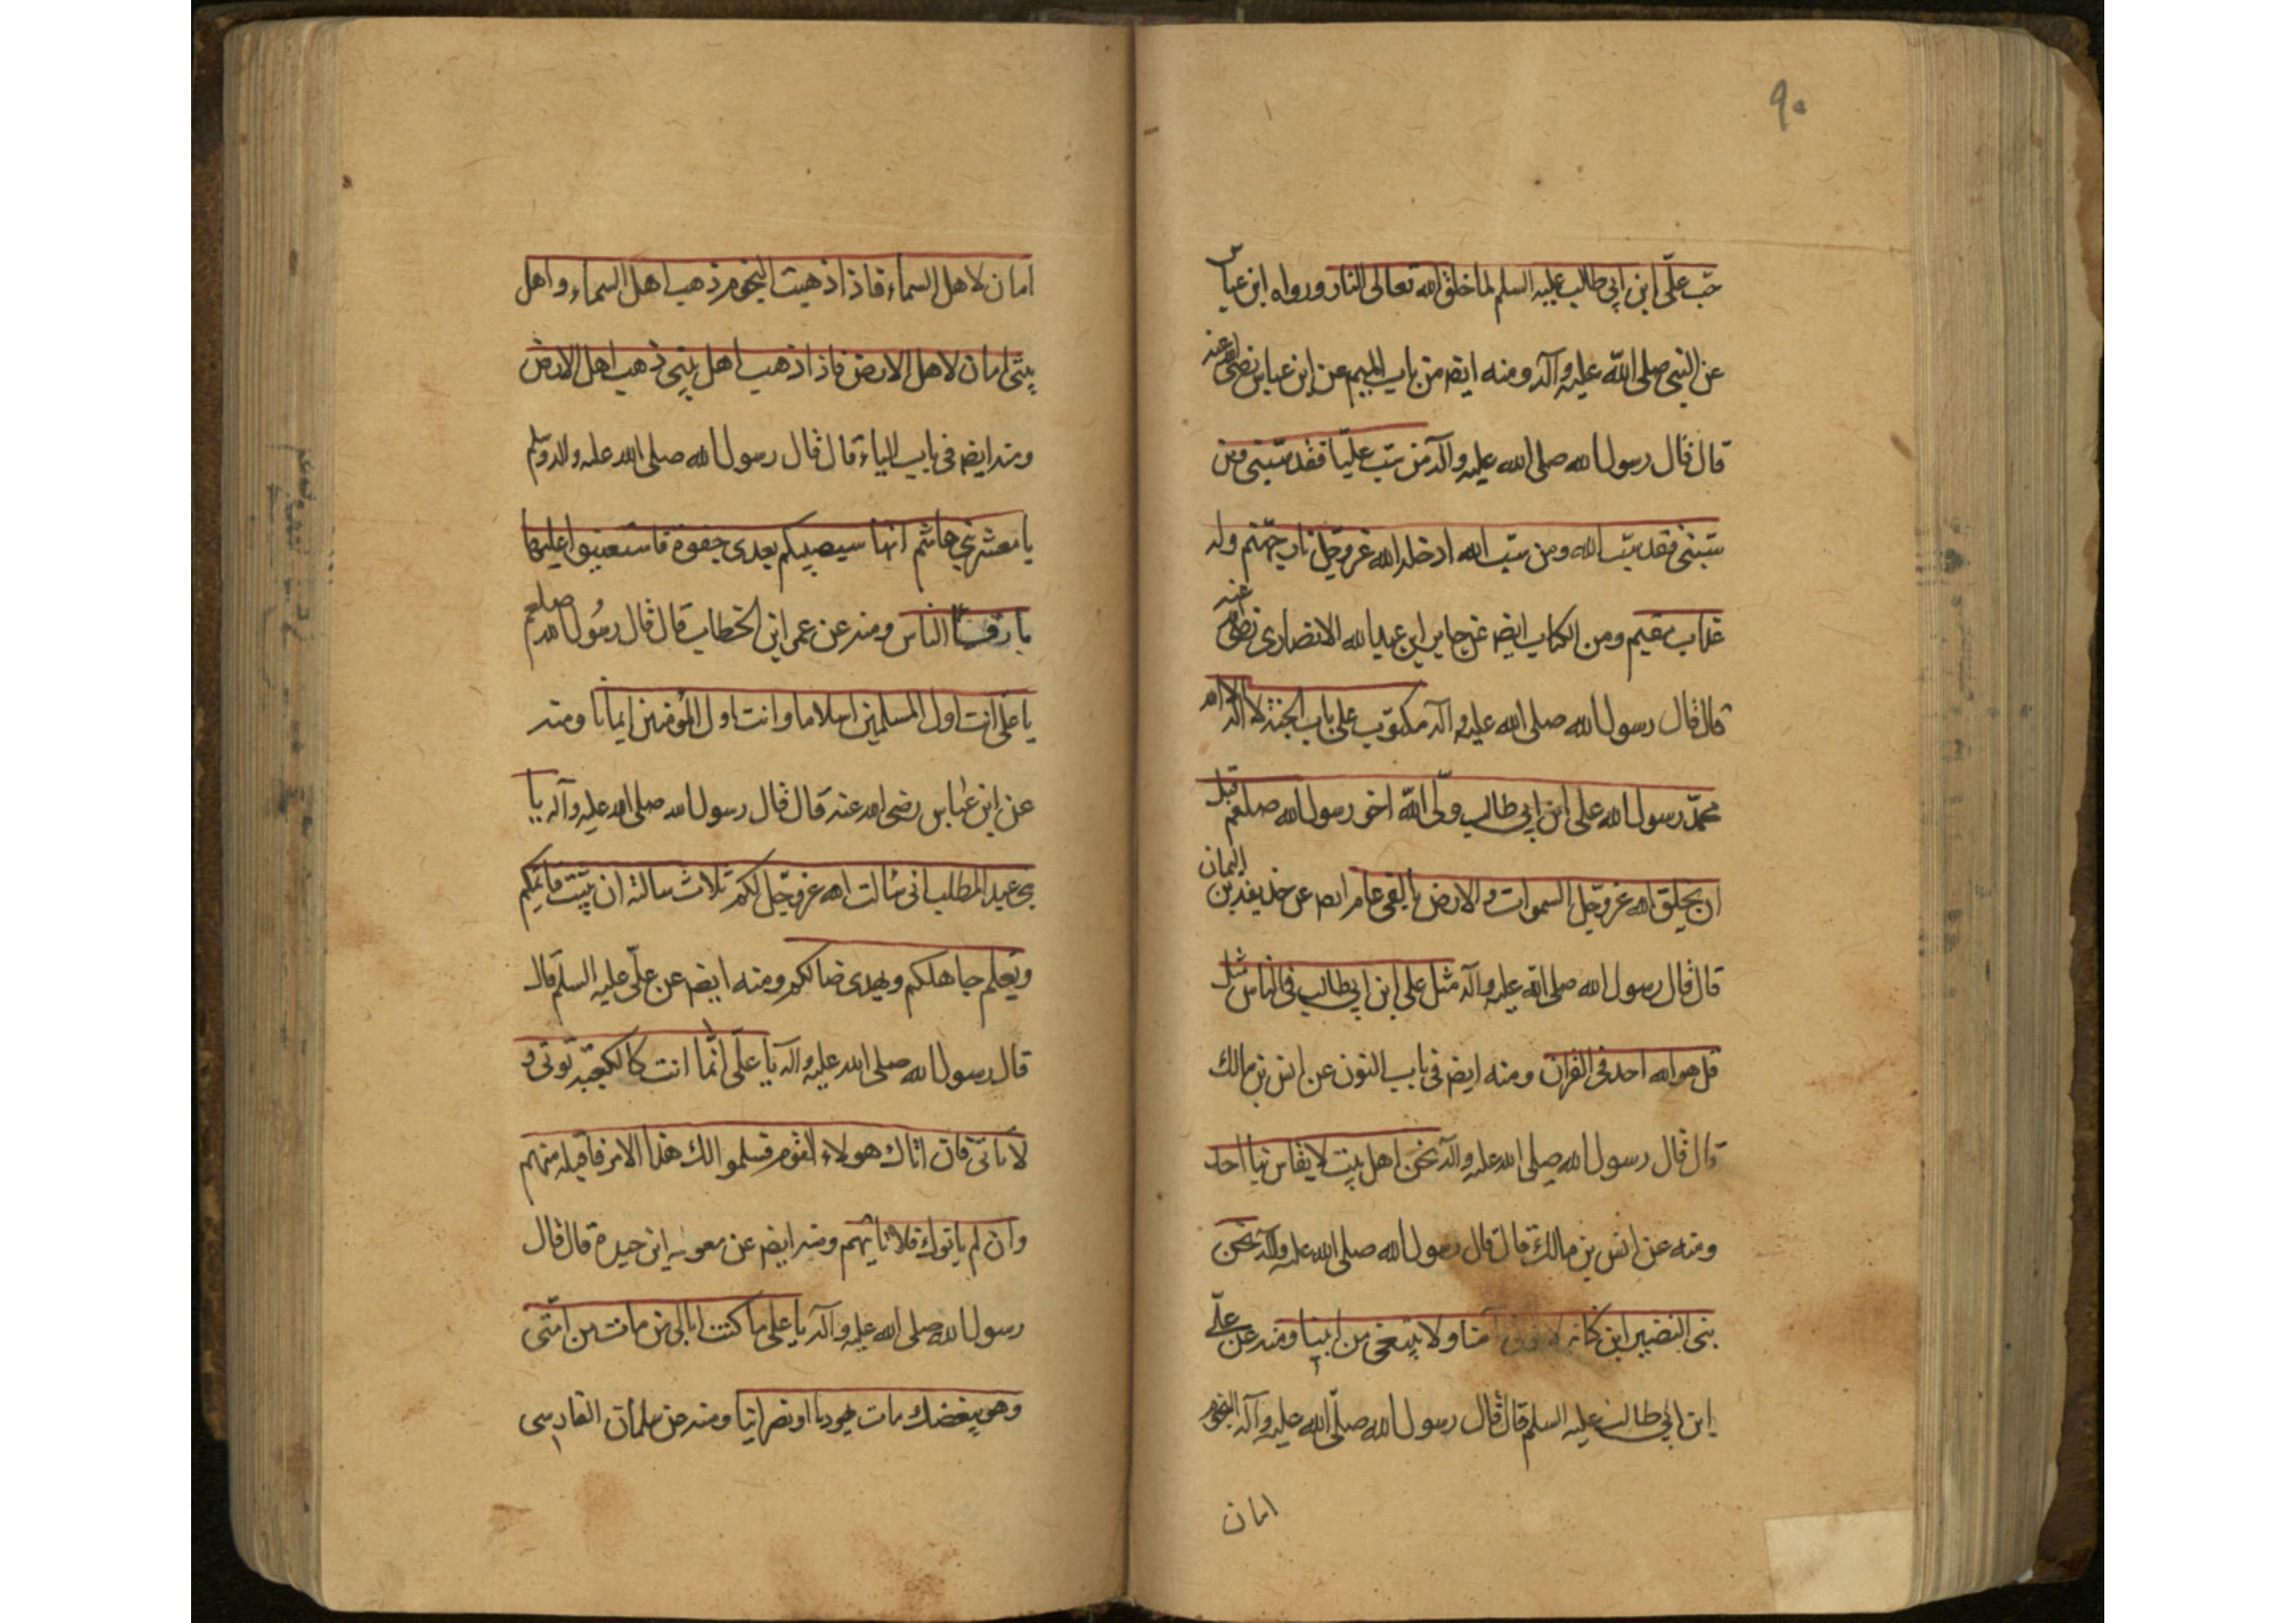 ٩٠
حب علّى ابن ابى طالب عليه السلم لما خلق الله تعالى النار ورواه ابن عباس
عن النبى صلى الله عليه وآله ومنه ايضا من باب الميم عن ابن عباس رضى الله عنه
قال قال رسول الله صلى الله عليه وآله من سب عليّا فقد سبنى ومن
سبنى فقد سب الله ومن سب الله ادخله الله عزوجل نار جهنم وله
عذاب مقيم ومن الكتاب ايضا عن جابر ابن عبد الله الانصارى رضى الله عنه
قال قال رسول الله صلى الله عليه وآله مكتوب على باب الجنة لا اله الا الله
محمد رسول الله على ابن ابى طالب ولى الله اخو رسول الله صلعم قبل
ان يخلق الله عزوجل السموات والارض بالفى عام ايضا عن حذيفة بن اليمان
قال قال رسول الله صلى الله عليه وآله مثل على ابن ابى طالب فى الناس مثل
قل هو الله احد فى القران ومنه ايضا فى باب النون عن انس بن مالك
قال قال رسول الله صلى الله عليه وآله نحن اهل بيت لا يقاس بنا احد
ومنه عن انس بن مالك قال قال رسول الله صلى الله عليه وآله نحن
بنى النضير ابن كنانه لا امنا ولا ينتفى من ابينا ومنه عن على
ابن ابى طالب عليه السلم قال قال رسول الله صلى الله عليه وآله النجوم
امان
امان لاهل السماء فاذا ذهبت النجوم ذهب اهل السماء واهل
بيتى امان لاهل الارض فاذا ذهب اهل بيتى ذهب اهل الارض
ومنه ايضا فى باب الياء قال قال رسول الله صلى الله عليه واله وسلم
يا معشر بنى هاشم انه سيصيبكم بعدى جفوة فاستعينوا عليها
الناس ومنه عن عمر ابن الخطاب قال قال رسول الله صلعم
يا على انت اول المسلمين اسلاما وانت اول المؤمنين ايمانا ومنه
عن ابن عباس رضى الله عنه قال قال رسول الله صلى الله عليه وآله يا
بنى عبد المطلب انى سالت الله عزوجل لكم ثلاث سالته ان يثبت قائمكم
ويعلم جاهلكم ويهدى ضالكم ومنه ايضا عن علّى عليه السلم قال
قال رسول الله صلى الله عليه واله يا على انما انت كالكعبة توتى و
لا تاتى فان اتاك هولاء القوم فسلموا لك هذا الامر فاقبله منهم
وان لم ياتوك فلا تاتهم ومنه ايضا عن معويه ابن حيدة قال قال
رسول الله صلى الله عليه وآله يا على ما كنت ابالى من مات من امتى
وهو يبغضك مات يهوديا او نصرانيا ومنه عن سلمان الفارسى